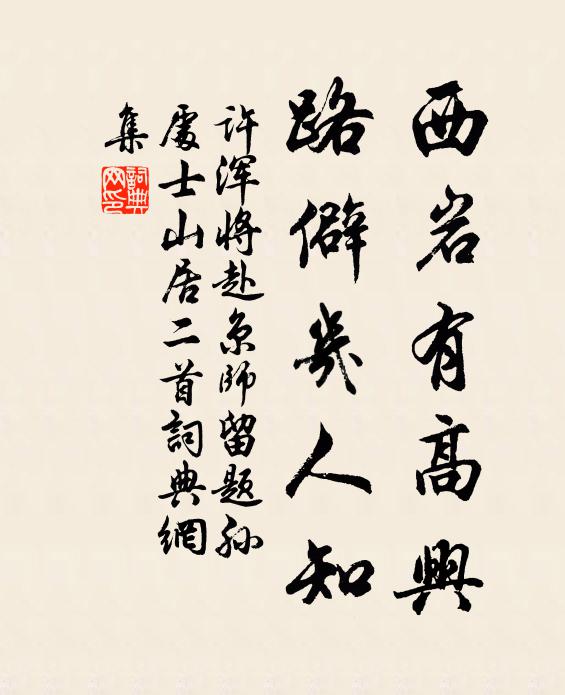 西岩有高興
路僻幾人知
许浑将赴京师留题孙
處士山居二首詞典網
集
詞典
网印